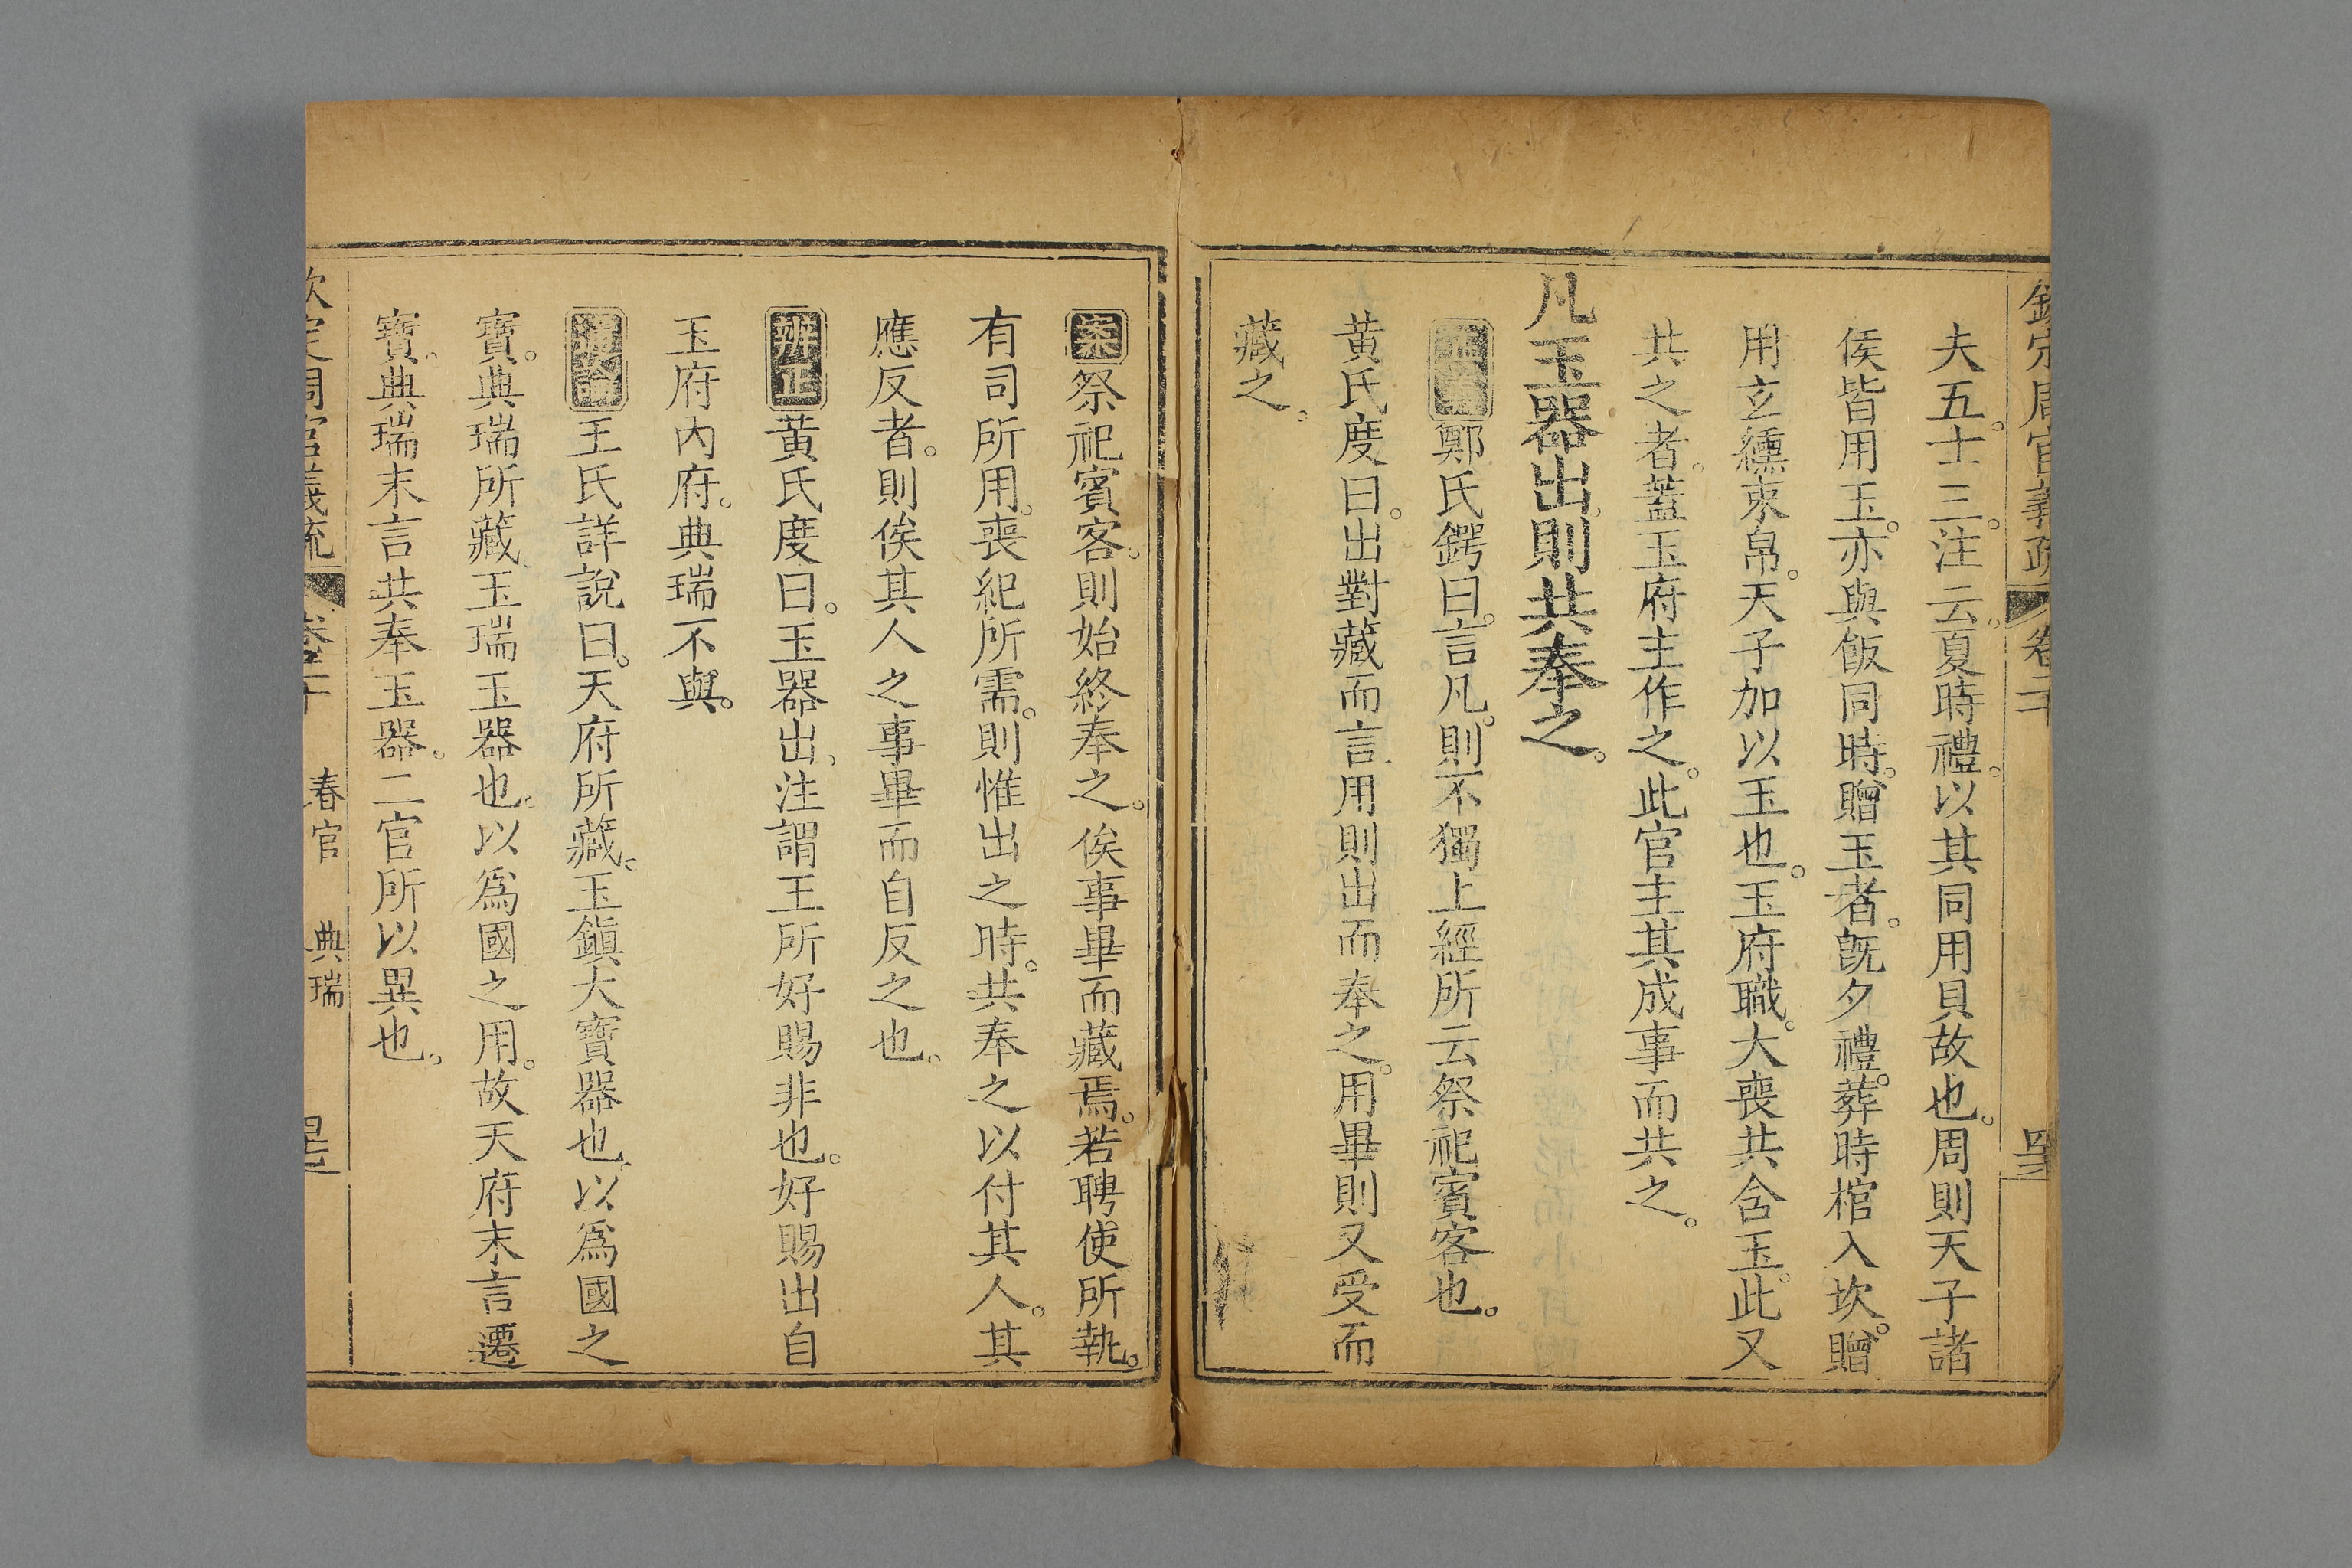 欽定周官義疏 卷二十
夫五。士三。注云。夏時禮。以其同用貝故也。周則天子諸
侯皆用玉。亦與飯同時。贈玉者。旣夕禮。葬時棺入坎。贈
用玄纁束帛。天子加以玉也。玉府職。大喪共含玉。此又
共之者。蓋玉府主作之。此官主其成事而共之。
凡玉器出。則共奉之。
鄭氏鍔曰。言凡。則不獨上經所云祭祀賓客也。
黄氏度曰。出對藏而言。用則出而奉之。用畢則又受而
藏之。
案祭祀賓客。則始終奉之。俟事畢而藏焉。若聘使所執。
有司所用。喪紀所需。則惟出之時。共奉之以付其人。其
應反者。則俟其人之事畢而自反之也。
辨正黄氏度曰。玉器出、注謂王所好賜非也。好賜出自
玉府內府。典瑞不與。
通論王氏詳說曰。天府所藏。玉鎭大寶器也、以爲國之
寶。典瑞所藏玉瑞玉器也。以爲國之用。故天府末言遷
寶。典瑞末言共奉玉器。二官所以異也。
欽定周官義疏 卷二十 春官 典瑞